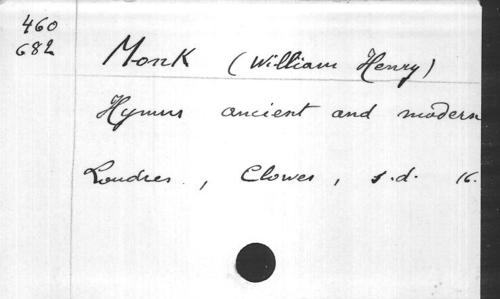 460
682
Monk (William Henry)
Hymns ancient and modern
Londres , Clowes , s.d. 16.